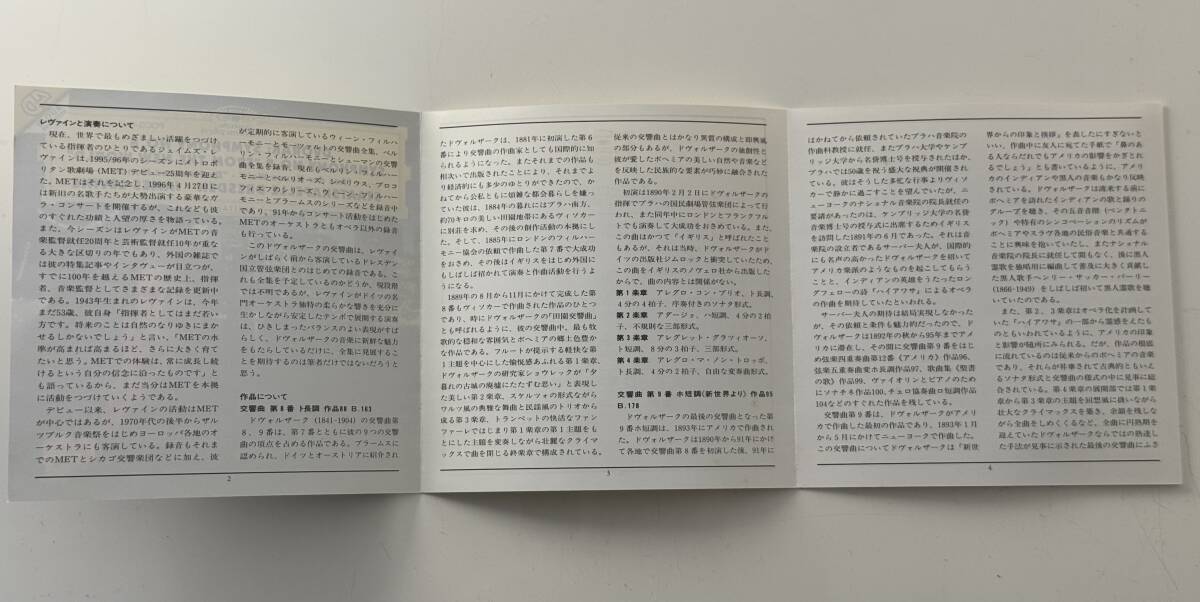 レヴァインと演奏について
現在、世界で最もめざましい活躍をつづけ
ている指揮者のひとりであるジェイムズ・レ
ヴァインは、1995/96年のシーズンにメトロポ
リタン歌劇場（MET）デビュー25周年を迎え
た。METはそれを記念し、1996年4月27日に
は新旧の名歌手たちが大勢出演する豪華なガ
ラ・コンサートを開催するが、これなども彼
のすぐれた功績と人望の厚さを物語っている。
また、今シーズンはレヴァインがMETの音
楽監督就任20周年と芸術監督就任10年が重な
る大きな区切りの年でもあり、外国の雑誌で
は彼の特集記事やインタヴューが目立つが、
すでに100年を越えるMETの歴史上、指揮
者、音楽監督としてさまざまな記録を更新中
である。1943年生まれのレヴァインは、今年
まだ53歳、彼自身「指揮者としてはまだ若い
方です。将来のことは自然のなりゆきにまか
せるしかないでしょう」と言い、「METの水
準が高まれば高まるほど、さらに大きく育て
たいと思う。METでの体験は、常に成長し続
けるという自分の信念に沿ったものです」と
も語っているから、まだ当分はMETを本拠
に活動をつづけていくようである。
デビュー以来、レヴァインの活動はMET
が中心ではあるが、1970年代の後半からザル
ツブルク音楽祭をはじめヨーロッパ各地のオ
ーケストラにも客演している。録音もそれま
でのMETとシカゴ交響楽団などに加え、彼
が定期的に客演しているウィーン・フィルハ
ーモニーとモーツァルトの交響曲全集、ベル
リン・フィルハーモニーとシューマンの交響
曲全集を録音、現在もベルリン・フィルハー
モニーとベルリオーズ、シベリウス、プロコ
フィエフのシリーズ、ウィーン・フィルハー
モニーとブラームスのシリーズなどを録音中
であり、91年からコンサート活動をはじめた
METのオーケストラともオペラ以外の録音
も行っている。
このドヴォルザークの交響曲は、レヴァイ
ンがしばらく前から客演しているドレスデン
国立管弦楽団とのはじめての録音である。こ
れも全集を予定しているのかどうか、現段階
では不明であるが、レヴァインがドイツの名
門オーケストラ独特の柔らかな響きを充分に
生かしながら安定したテンポで展開する演奏
は、ひきしまったバランスのよい表現がすば
らしく、ドヴォルザークの音楽に新鮮な魅力
をもたらしているだけに、全集に発展するこ
とを期待するのは筆者だけではないだろうと
思う。
作品について
交響曲 第8番 ト長調 作品88 B.163
ドヴォルザーク（1841-1904）の交響曲第
8、9番は、第7番とともに彼の9つの交響
曲の頂点を占める作品である。ブラームスに
認められ、ドイツとオーストリアに紹介され
2
たドヴォルザークは、1881年に初演した第6
番により交響曲の作曲家としても国際的に知
られるようになった。またそれまでの作品も
相次いで出版されたことにより、それまでよ
り経済的にも多少のゆとりができたので、か
ねてから公私ともに煩雑な都会暮らしを嫌っ
ていた彼は、1884年の暮れにはプラハ南方、
約70キロの美しい田園地帯にあるヴィソカー
に別荘を求め、その後の創作活動の本拠にし
た。そして、1885年にロンドンのフィルハー
モニー協会の依頼で作曲した第7番で大成功
をおさめ、その後はイギリスをはじめ外国に
もしばしば招かれて演奏と作曲活動を行うよ
うになる。
1889年の8月から11月にかけて完成した第
8番もヴィソカーで作曲された作品のひとつ
であり、時にドヴォルザークの「田園交響曲」
とも呼ばれるように、彼の交響曲中、最も牧
歌的な穏和な雰囲気とボヘミアの郷土色豊か
な作品である。フルートが提示する軽快な第
1主題を中心にした愉悦感あふれる第1楽章、
ドヴォルザークの研究家ショウレックが「夕
暮れの古城の廃墟にたたずむ思い」と表現し
た美しい第2楽章、スケルツォの形式ながら
ワルツ風の典雅な舞曲と民謡風のトリオから
成る第3楽章、トランペットの快活なファン
ファーレではじまり第1楽章の第1主題をも
とにした主題を変奏しながら壮麗なクライマ
ックスで曲を閉じる終楽章で構成されている。
従来の交響曲とはかなり異質の構成と即興風
の部分もあるが、ドヴォルザークの独創性と
彼が愛したボヘミアの美しい自然や音楽など
を反映した民族的な要素が巧妙に融合された
作品である。
初演は1890年2月2日にドヴォルザークの
指揮でプラハの国民劇場管弦楽団によって行
われ、また同年中にロンドンとフランクフル
トでも演奏して大成功をおさめている。また、
この曲はかつて「イギリス」と呼ばれたこと
もあるが、それは当時、ドヴォルザークがド
イツの出版社ジムロックと衝突していたため、
この曲をイギリスのノヴェロ社から出版した
からで、曲の内容とは関係がない。
第1楽章 アレグロ・コン・ブリオ、ト長調、
4分の4拍子、序奏付きのソナタ形式。
第2楽章 アダージョ、ハ短調、4分の2拍
子、不規則な三部形式。
第3楽章 アレグレット・グラツィオーソ、
ト短調、8分の3拍子、三部形式。
第4楽章 アレグロ・マ・ノン・トロッポ、
ト長調、4分の2拍子、自由な変奏曲形式。
交響曲 第9番 ホ短調《新世界より》作品95
B.178
ドヴォルザークの最後の交響曲となった第
9番ホ短調は、1893年にアメリカで作曲され
た。ドヴォルザークは1890年から91年にかけ
て各地で交響曲第8番を初演した後、91年に
3
はかねてから依頼されていたプラハ音楽院の
作曲科教授に就任、またプラハ大学やケンブ
リッジ大学から名誉博士号を授与されたほか、
プラハでは50歳を祝う盛大な祝典が開催され
ている。彼はそうした多忙な行事よりヴィソ
カーで静かに過ごすことを望んでいたが、ニ
ューヨークのナショナル音楽院の院長就任の
要請があったのは、ケンブリッジ大学の名誉
音楽博士号の授与式に出席するためイギリス
を訪問した1891年の6月であった。それは音
楽院の設立者であるサーバー夫人が、国際的
にも名声の高かったドヴォルザークを招いて
アメリカ楽派のようなものを起こしてもらう
ことと、インディアンの英雄をうたったロン
グフェローの詩『ハイアワサ』によるオペラ
の作曲を期待していたといわれる。
サーバー夫人の期待は結局実現しなかった
が、その依頼と条件も魅力的だったので、ド
ヴォルザークは1892年の秋から95年までアメ
リカに滞在し、その間に交響曲第9番をはじ
め弦楽四重奏曲第12番《アメリカ》作品96、
弦楽五重奏曲変ホ長調作品97、歌曲集《聖書
の歌》作品99、ヴァイオリンとピアノのため
にソナチネ作品100、チェロ協奏曲ロ短調作品
104などのすぐれた作品を残している。
交響曲第9番は、ドヴォルザークがアメリ
カで作曲した最初の作品であり、1893年1月
から5月にかけてニューヨークで作曲した。
この交響曲についてドヴォルザークは「新世
界からの印象と挨拶」を表したにすぎないと
いい、作曲中に友人に宛てた手紙で「鼻のあ
る人ならだれでもアメリカの影響をかぎとれ
るでしょう」とも書いているように、アメリ
カのインディアンや黒人の音楽もかなり反映
されている。ドヴォルザークは渡米する前に
ボヘミアを訪れたインディアンの歌と踊りの
グループを聴き、その五音音階（ペンタトニ
ック）や特有のシンコペーションのリズムが
ボヘミアやスラヴ各地の民俗音楽と共通する
ことに興味を抱いていたし、またナショナル
音楽院の院長に就任して間もなく、後に黒人
霊歌を独唱用に編曲して普及に大きく貢献し
た黒人歌手ヘンリー・サッカー・バーリー
(1866-1949)をしばしば招いて黒人霊歌を聴
いていたのである。
また、第2、3楽章はオペラ化を計画して
いた『ハイアワサ』の一部から霊感をえたも
のともいわれているように、アメリカの印象
と影響が随所にみられる。だが、作品の根底
に流れているのは従来からのボヘミアの音楽
であり、それらが彫琢されて古典的ともいえ
るソナタ形式と交響曲の様式の中に見事に結
合されている。第4楽章の展開部では第1楽
章から第3楽章の主題を回想風に扱いながら
壮大なクライマックスを築き、余韻を残しな
がら全曲をしめくくるなど、全曲に円熟期を
迎えていたドヴォルザークならではの熟達し
た手法が見事に示された最後の交響曲にふさ
4